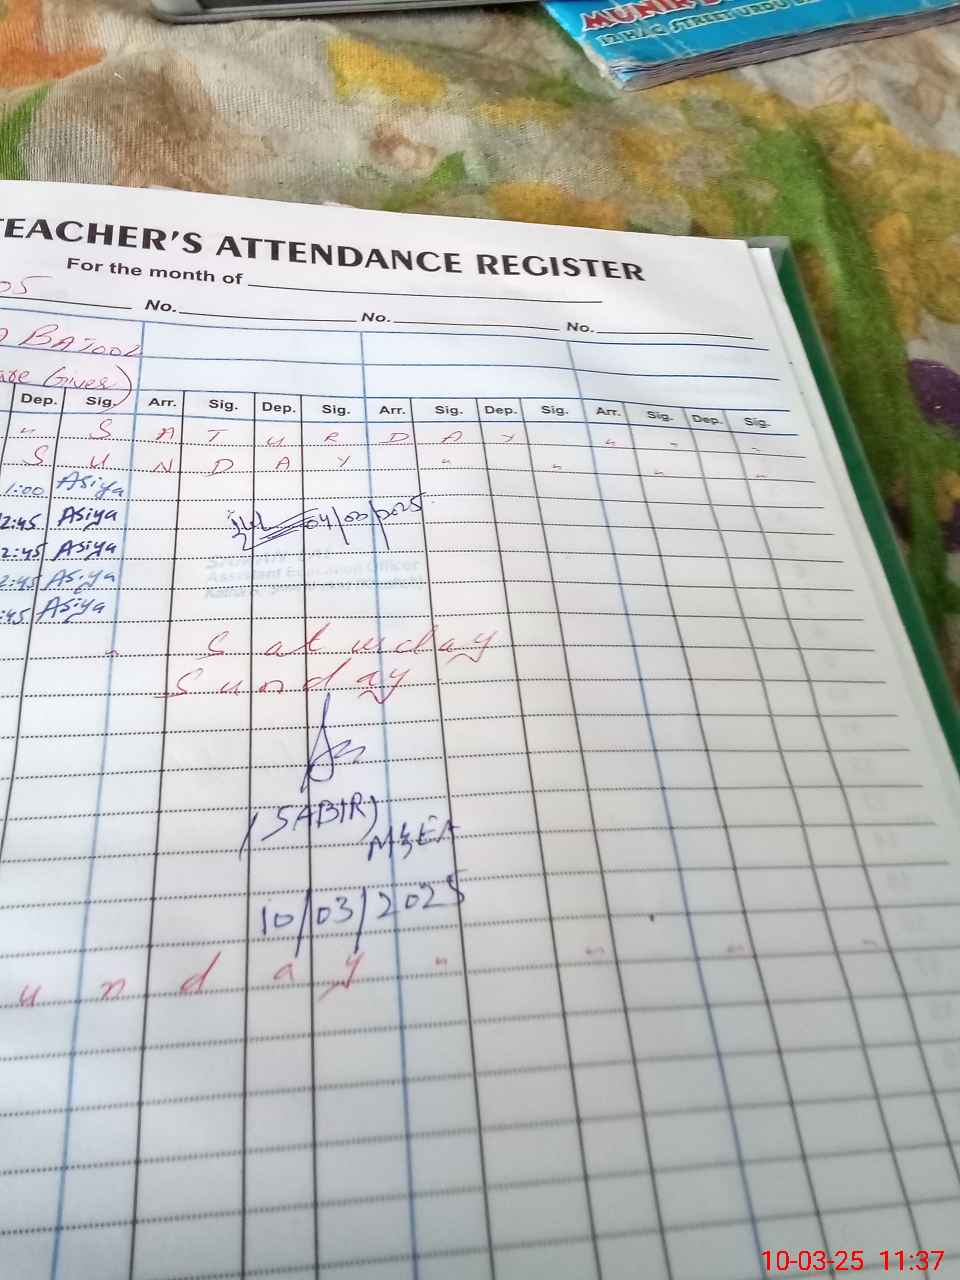 MUNIR
12 HAQ STREET URDU
TEACHER'S ATTENDANCE REGISTER
For the month of
05
No. No. No.
BATOOL
Dep. Sig. Arr. Sig. Dep. Sig. Arr. Sig. Dep. Sig. Arr. Sig. Dep. Sig.
" S A T U R D A Y " " "
S U N D A Y " " " "
1:00 Asiya
2:45 Asiya
2:45 Asiya
2:45 Asiya
:45 Asiya
Assistant Education Officer
" Saturday
Sunday
(SABIR)
MEA
10/03/2025
u n d a y " " " "
10-03-25 11:37